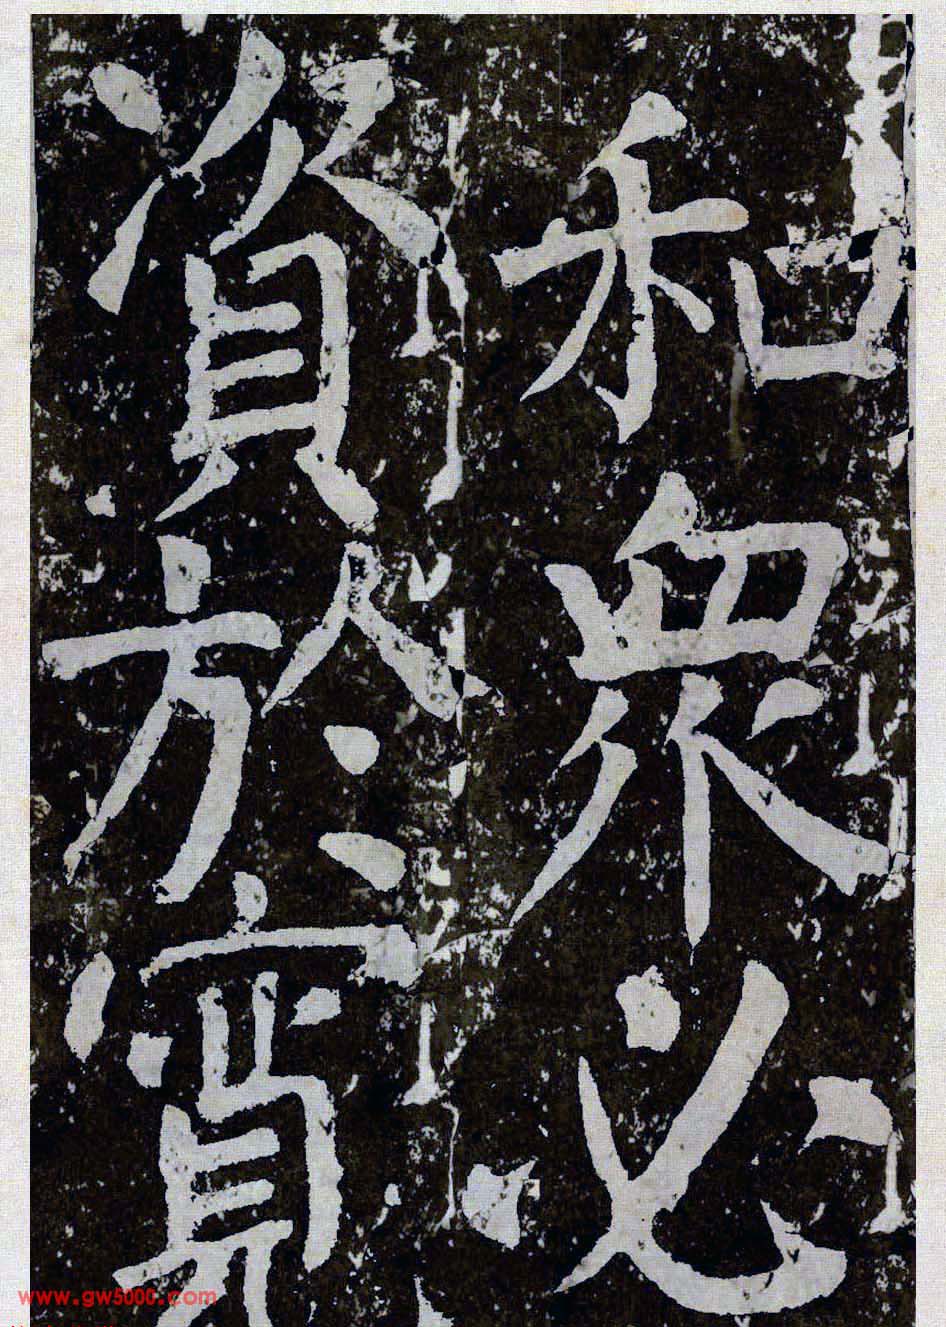 和衆必
資於寬
www.gw5000.com